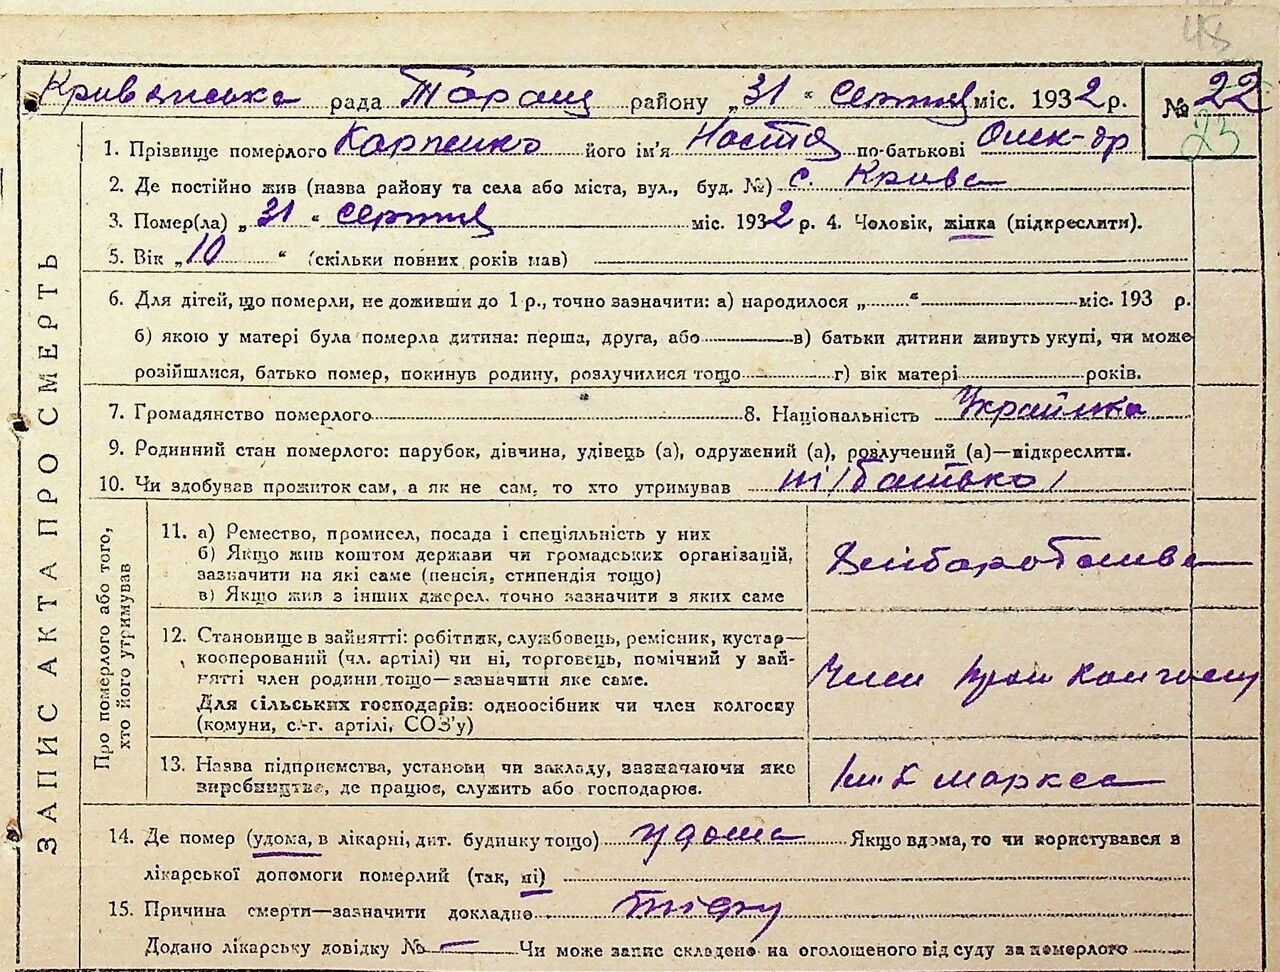 48
Кривянська рада Таращ району „31“ серпня міс. 1932 р. № 22
23
1. Прізвище померлого Карпенко його ім'я Настя по-батькові Олек-др
2. Де постійно жив (назва району та села або міста, вул., буд. №) с. Крива
3. Помер(ла) „31“ серпня міс. 1932 р. 4. Чоловік, жінка (підкреслити).
5. Вік „10“ (скільки повних років мав)
6. Для дітей, що померли, не доживши до 1 р., точно зазначити: а) народилося „ “ міс. 193 р.
б) якою у матері була померла дитина: перша, друга, або в) батьки дитини живуть укупі, чи може
розійшлися, батько помер, покинув родину, розлучилися тощо г) вік матері років.
7. Громадянство померлого 8. Національність Українка
9. Родинний стан померлого: парубок, дівчина, удівець (а), одружений (а), розлучений (а)—підкреслити.
10. Чи здобував прожиток сам, а як не сам, то хто утримував ні /батько/
ЗАПИС АКТА ПРО СМЕРТЬ
Про померлого або того,
хто його утримував
11. а) Ремество, промисел, посада і спеціяльність у них
б) Якщо жив коштом держави чи громадських організацій,
зазначити на які саме (пенсія, стипендія тощо)
в) Якщо жив з інших джерел, точно зазначити з яких саме
12. Становище в зайнятті: робітник, службовець, ремісник, кустар—
кооперований (чл. артілі) чи ні, торговець, помічний у зай-
нятті член родини тощо—зазначити яке саме.
Для сільських господарів: одноосібник чи член колгоспу
(комуни, с.-г. артілі, СОЗ'у)
Член
13. Назва підприємства, установи чи закладу, зазначаючи яке
виробництво, де працює, служить або господарює.
ім. К Маркса
14. Де помер (удома, в лікарні, дит. будинку тощо) удома Якщо вдома, то чи користувався в
лікарської допомоги померлий (так, ні)
15. Причина смерти—зазначити докладно тифу
Додано лікарську довідку № — Чи може запис складено на оголошеного від суду за померлого